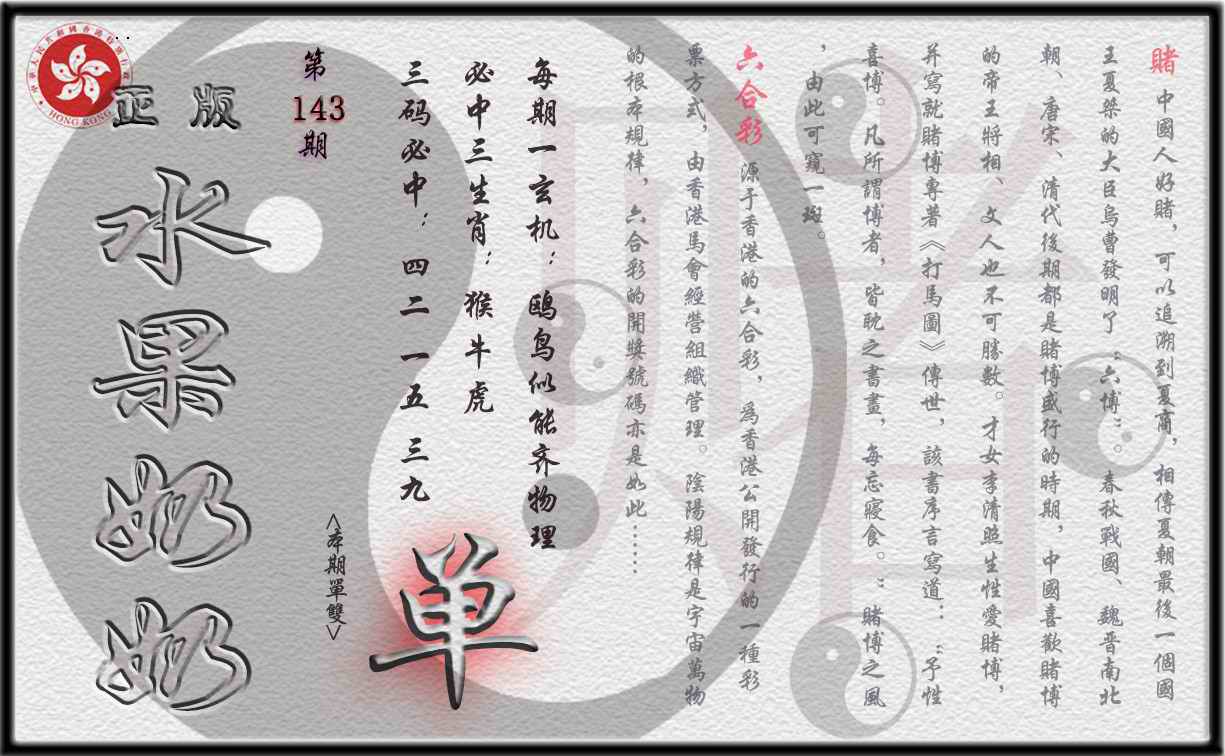 賭 中國人好賭，可以追溯到夏商，相傳夏朝最後一個國
王夏桀的大臣烏曹發明了“六博”。春秋戰國、魏晋南北
朝、唐宋、清代後期都是賭博盛行的時期，中國喜歡賭博
的帝王將相、文人也不可勝數。才女李清照生性愛賭博，
并寫就賭博專著《打馬圖》傳世，該書序言寫道：“予性
喜博。凡所謂博者，皆耽之書畫，每忘寢食。”賭博之風
，由此可窺一斑。
六合彩 源于香港的六合彩，爲香港公開發行的一種彩
票方式，由香港馬會經營組織管理。陰陽規律是宇宙萬物
的根本規律，六合彩的開獎號碼亦是如此……
每期一玄机：鸥鸟似能齐物理
必中三生肖：猴牛虎
三码必中：四二 一五 三九
单
<本期單雙>
第
143
期
正版
水果奶奶
中華人民共和國香港特別行政區
HONG KONG